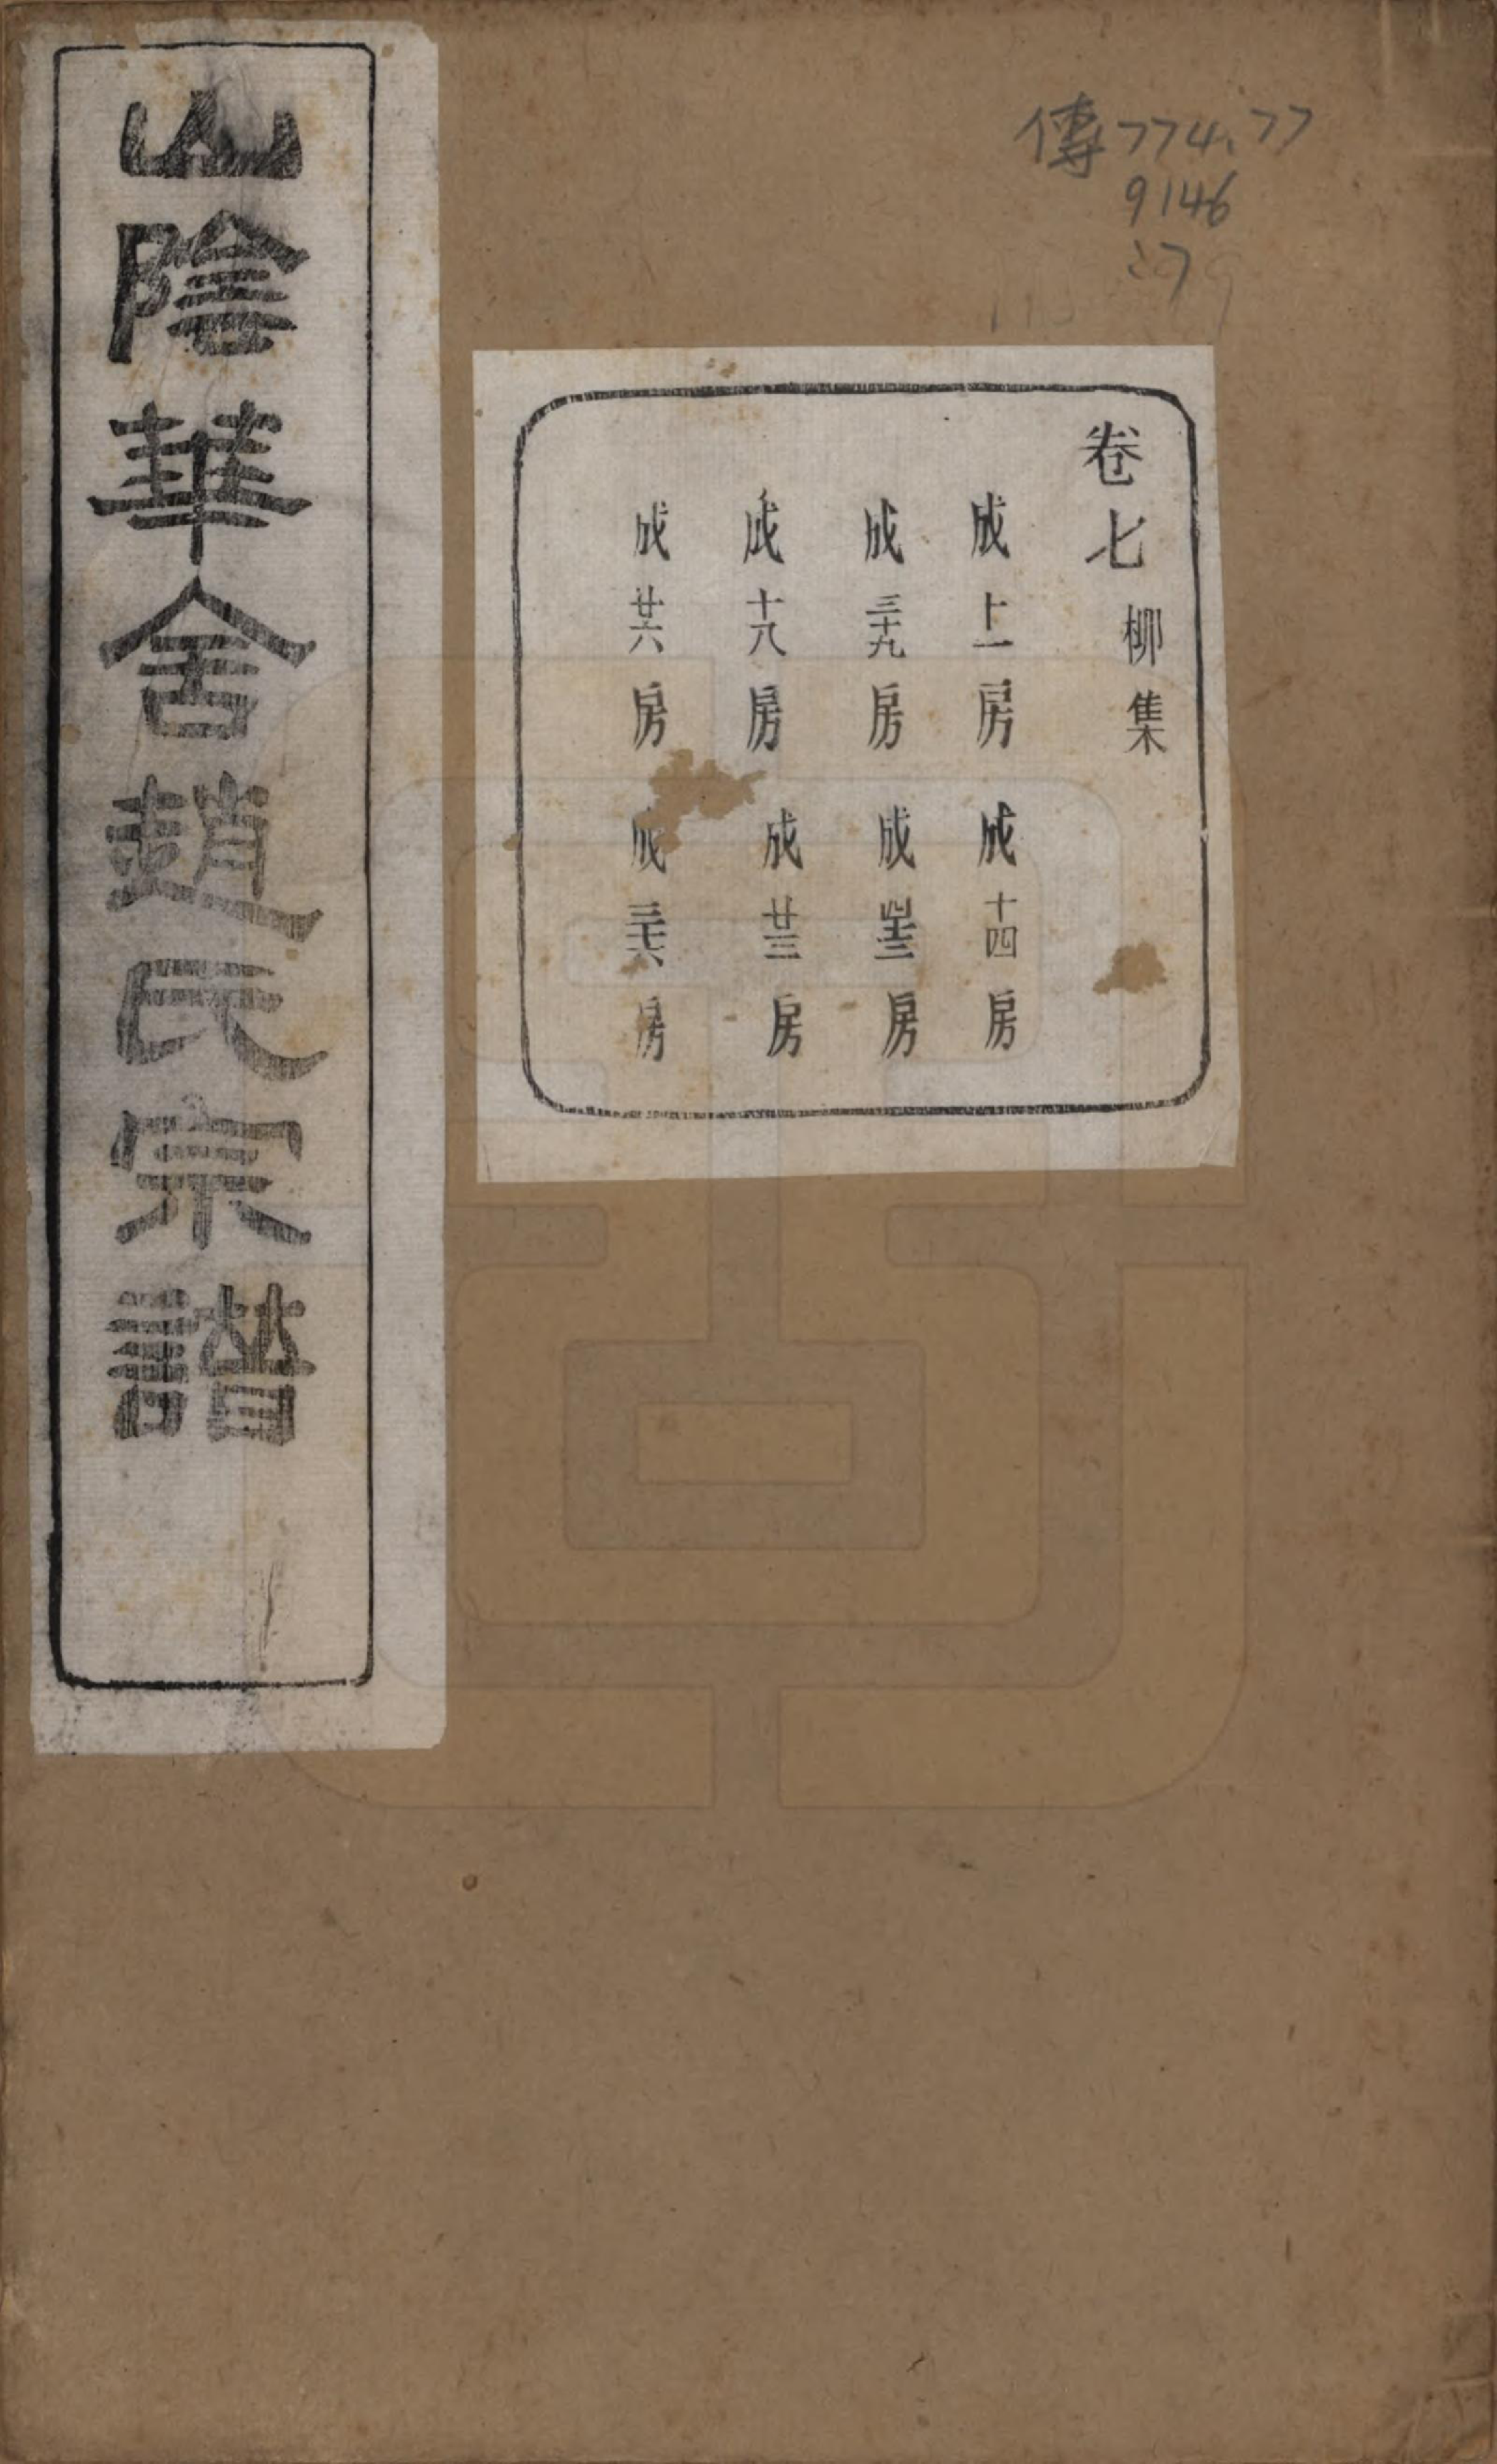 傳774.77
9146
:7
山陰華舍趙氏宗譜
卷七 柳集
成十一房 成十四房
成三十九房 成四十三房
成十八房 成廿三房
成廿六房 成三十六房